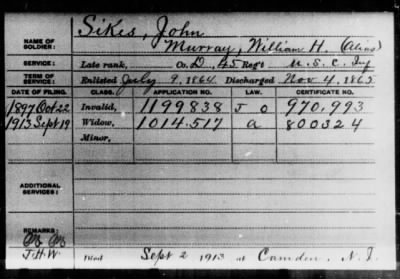 NAME OF SOLDIER: Sikes, John
Murray, William H. (Alias)
SERVICE: Late rank, Co. D, 45 Reg't U. S. C. Inf
TERM OF SERVICE: Enlisted July 9, 1864. Discharged Nov 4, 1865
DATE OF FILING. CLASS. APPLICATION NO. LAW. CERTIFICATE NO.
1897 Oct 22 Invalid, 1199838 J O 970,993
1913 Sept 19 Widow, 1014.517 a 800324
Minor,
ADDITIONAL SERVICES:
REMARKS:
J.H.W. Died Sept 2 1913 at Camden, N. J.